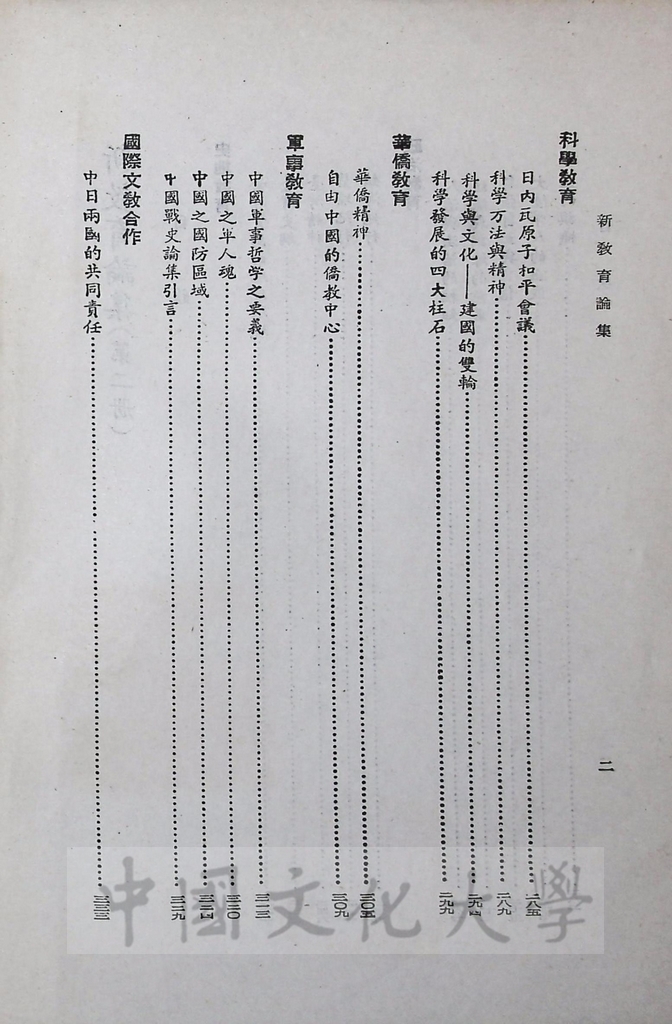 新教育論集
二
科學教育
日內瓦原子和平會議……二八五
科學方法與精神……二八九
科學與文化——建國的雙輪……二九四
科學發展的四大柱石……二九九
華僑教育
華僑精神……三〇五
自由中國的僑教中心……三〇九
軍事教育
中國軍事哲学之要義……三一三
中國之軍人魂……三二〇
中國之國防區域……三二四
中國戰史論集引言……三二九
國際文教合作
中日兩國的共同責任……三三三
中國文化大學